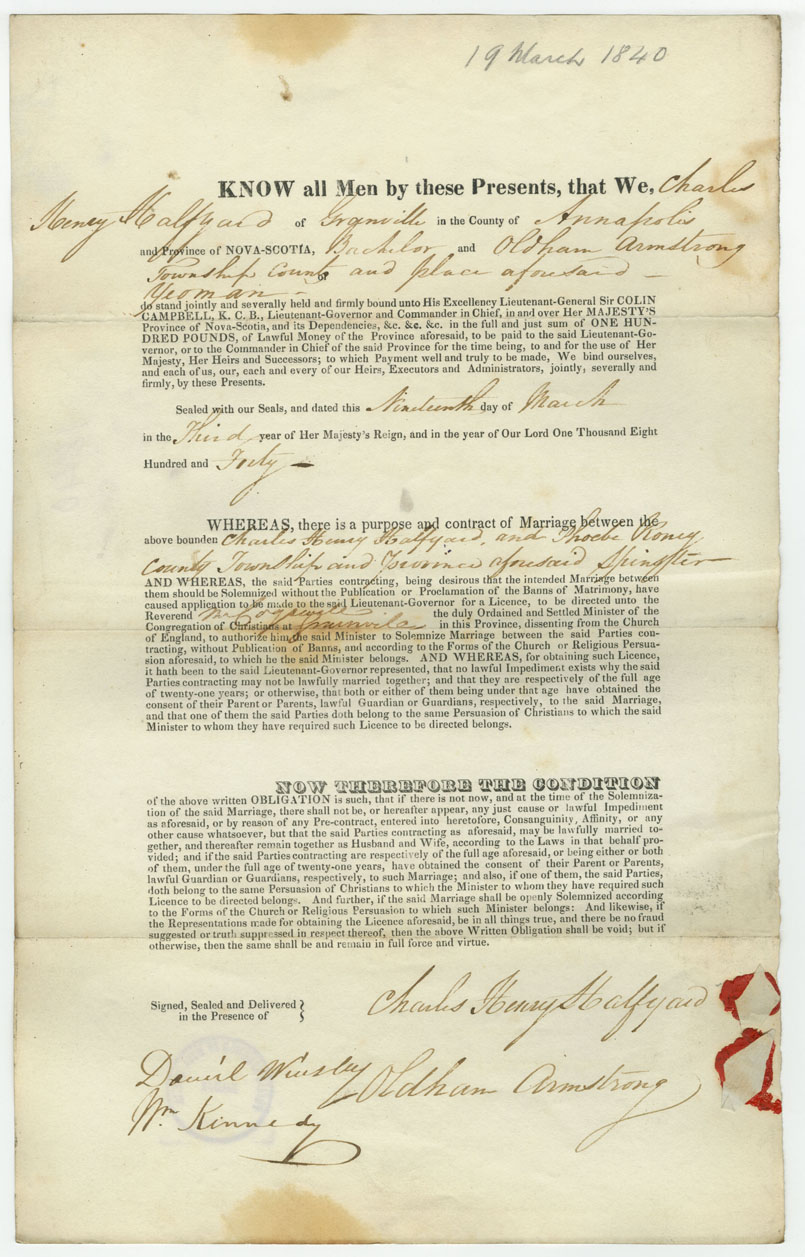 19 March 1840
KNOW all Men by these Presents, that We, Charles
Henry Halfyard of Granville in the County of Annapolis
and Province of NOVA-SCOTIA, Bachelor and Oldham Armstrong
of Township County and place aforesaid —
Yeoman —
do stand jointly and severally held and firmly bound unto His Excellency Lieutenant-General Sir COLIN
CAMPBELL, K. C. B., Lieutenant-Governor and Commander in Chief, in and over Her MAJESTY'S
Province of Nova-Scotia, and its Dependencies, &c. &c. &c. in the full and just sum of ONE HUN-
DRED POUNDS, of Lawful Money of the Province aforesaid, to be paid to the said Lieutenant-Go-
vernor, or to the Commander in Chief of the said Province for the time being, to and for the use of Her
Majesty, Her Heirs and Successors; to which Payment well and truly to be made, We bind ourselves,
and each of us, our, each and every of our Heirs, Executors and Administrators, jointly, severally and
firmly, by these Presents.
Sealed with our Seals, and dated this Nineteenth day of March
in the Third year of Her Majesty's Reign, and in the year of Our Lord One Thousand Eight
Hundred and Forty —
WHEREAS, there is a purpose and contract of Marriage between the
above bounden Charles Henry Halfyard, and Phoebe Roney
County Township and Province aforesaid Spinster
AND WHEREAS, the said Parties contracting, being desirous that the intended Marriage between
them should be Solemnized without the Publication or Proclamation of the Banns of Matrimony, have
caused application to be made to the said Lieutenant-Governor for a Licence, to be directed unto the
Reverend Mr the duly Ordained and Settled Minister of the
Congregation of Christians at in this Province, dissenting from the Church
of England, to authorize him the said Minister to Solemnize Marriage between the said Parties con-
tracting, without Publication of Banns, and according to the Forms of the Church or Religious Persua-
sion aforesaid, to which he the said Minister belongs. AND WHEREAS, for obtaining such Licence,
it hath been to the said Lieutenant-Governor represented, that no lawful Impediment exists why the said
Parties contracting may not be lawfully married together; and that they are respectively of the full age
of twenty-one years; or otherwise, that both or either of them being under that age have obtained the
consent of their Parent or Parents, lawful Guardian or Guardians, respectively, to the said Marriage,
and that one of them the said Parties doth belong to the same Persuasion of Christians to which the said
Minister to whom they have required such Licence to be directed belongs.
NOW THEREFORE THE CONDITION
of the above written OBLIGATION is such, that if there is not now, and at the time of the Solemniza-
tion of the said Marriage, there shall not be, or hereafter appear, any just cause or lawful Impediment
as aforesaid, or by reason of any Pre-contract, entered into heretofore, Consanguinity, Affinity, or any
other cause whatsoever, but that the said Parties contracting as aforesaid, may be lawfully married to-
gether, and thereafter remain together as Husband and Wife, according to the Laws in that behalf pro-
vided; and if the said Parties contracting are respectively of the full age aforesaid, or being either or both
of them, under the full age of twenty-one years, have obtained the consent of their Parent or Parents,
lawful Guardian or Guardians, respectively, to such Marriage; and also, if one of them, the said Parties,
doth belong to the same Persuasion of Christians to which the Minister to whom they have required such
Licence to be directed belongs. And further, if the said Marriage shall be openly Solemnized according
to the Forms of the Church or Religious Persuasion to which such Minister belongs: And likewise, if
the Representations made for obtaining the Licence aforesaid, be in all things true, and there be no fraud
suggested or truth suppressed in respect thereof, then the above Written Obligation shall be void; but if
otherwise, then the same shall be and remain in full force and virtue.
Signed, Sealed and Delivered
in the Presence of
Charles Henry Halfyard
Daniel Winsley
Oldham Armstrong
Wm Kennedy